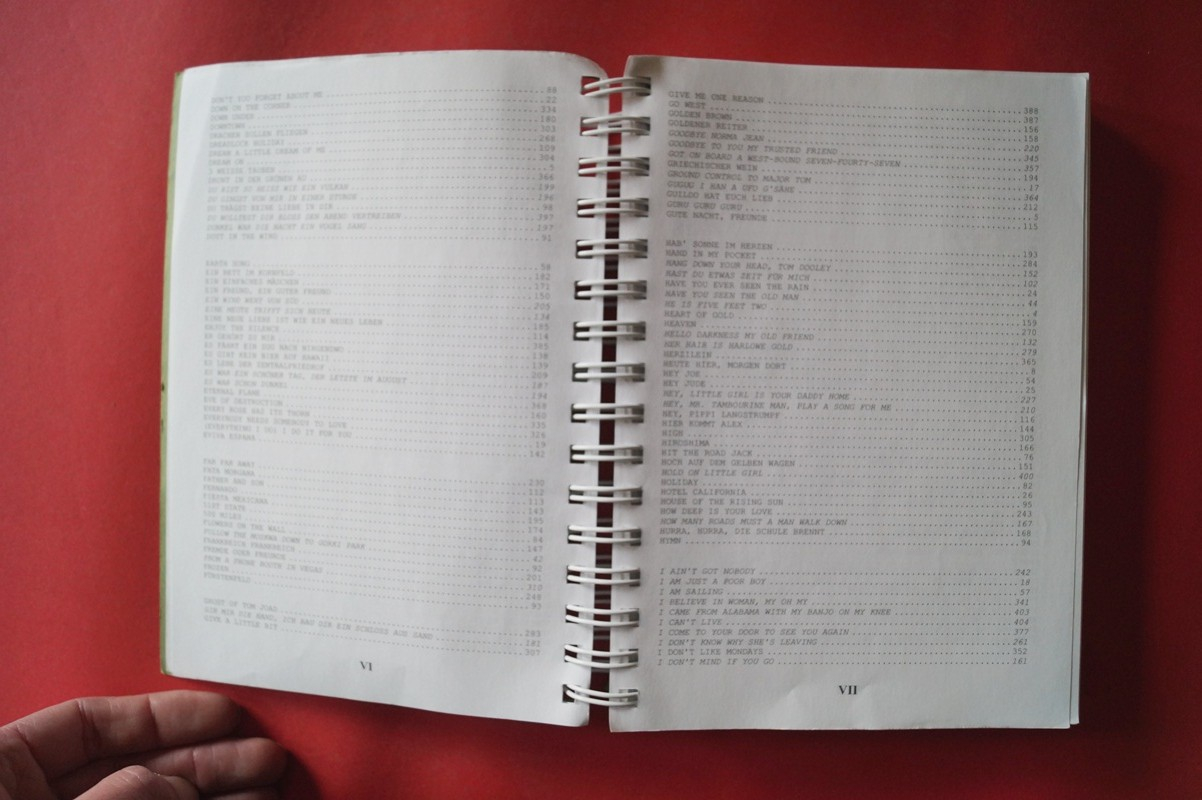 DON'T YOU FORGET ABOUT ME 88
DOWN ON THE CORNER 22
DOWN UNDER 334
DOWNTOWN 180
DRACHEN SOLLEN FLIEGEN 303
DREADLOCK HOLIDAY 268
DREAM A LITTLE DREAM OF ME 109
DREAM ON 304
3 WEISSE TAUBEN 5
IN DER GRÜNEN AU 366
DU BIST SO HEISS WIE EIN VULKAN 199
DU GINGST VON MIR IN EINER STUNDE 196
DU TRÄGST KEINE LIEBE IN DIR 98
DU WOLLTEST DIR BLOSS DEN ABEND VERTREIBEN 397
DUNKEL WAR DIE NACHT EIN VOGEL SANG 197
DUST IN THE WIND 91
EARTH SONG 58
EIN BETT IM KORNFELD 182
EIN EINFACHES MÄDCHEN 171
EIN FREUND, EIN GUTER FREUND 150
EIN WIND WEHT VON SÜD 205
EINE MEUTE TRIFFT SICH HEUTE 234
EINE NEUE LIEBE IST WIE EIN NEUES LEBEN 185
ENJOY THE SILENCE 114
ER GEHÖRT ZU MIR 385
ES FÄHRT EIN ZUG NACH NIRGENDWO 138
ES GIBT KEIN BIER AUF HAWAII 139
ES LEBE DER ZENTRALFRIEDHOF 209
ES WAR EIN SCHÖNER TAG, DER LETZTE IM AUGUST 187
ES WAR SCHON DUNKEL 194
ETERNAL FLAME 368
EVE OF DESTRUCTION 160
EVERY ROSE HAS ITS THORN 335
EVERYBODY NEEDS SOMEBODY TO LOVE 326
(EVERYTHING I DO) I DO IT FOR YOU 19
EVIVA ESPANA 142
FAR FAR AWAY 230
FATA MORGANA 112
FATHER AND SON 113
FERNANDO 143
FIESTA MEXICANA 195
174
500 MILES 54
FLOWERS ON THE WALL 147
FOLLOW THE MOSKWA DOWN TO GORKI PARK 42
FRANKREICH FRANKREICH 92
FREMDE ODER FREUNDE 201
FROM A PHONE BOOTH IN VEGAS 310
FROZEN 248
FÜRSTENFELD 93
GHOST OF TOM JOAD 283
GIB MIR DIE HAND, ICH BAU DIR EIN SCHLOSS AUS SAND 182
GIVE A LITTLE BIT 307
VI
GIVE ME ONE REASON 388
GO WEST 387
GOLDEN BROWN 156
GOLDENER REITER 158
GOODBYE NORMA JEAN 220
GOODBYE TO YOU MY TRUSTED FRIEND 345
GOT ON BOARD A WEST-BOUND SEVEN-FOURTY-SEVEN 357
GRIECHISCHER WEIN 194
GROUND CONTROL TO MAJOR TOM 17
GUGUU I HAN A UFO G'SÄHE 364
GUILDO HAT EUCH LIEB 212
GURU GURU GURU 3
GUTE NACHT, FREUNDE 115
HAB' SONNE IM HERZEN 193
HAND IN MY POCKET 284
HANG DOWN YOUR HEAD, TOM DOOLEY 152
HAST DU ETWAS ZEIT FÜR MICH 102
HAVE YOU EVER SEEN THE RAIN 24
HAVE YOU SEEN THE OLD MAN 44
HE IS FIVE FEET TWO 4
HEART OF GOLD 159
HEAVEN 270
HELLO DARKNESS MY OLD FRIEND 132
HER HAIR IS HARLOWE GOLD 273
HERZILEIN 365
HEUTE HIER, MORGEN DORT 8
HEY JOE 54
HEY JUDE 25
HEY, LITTLE GIRL IS YOUR DADDY HOME 227
HEY, MR. TAMBOURINE MAN, PLAY A SONG FOR ME 210
HEY, PIPPI LANGSTRUMPF 116
HIER KOMMT ALEX 144
HIGH 305
HIROSHIMA 166
HIT THE ROAD JACK 76
HOCH AUF DEM GELBEN WAGEN 151
HOLD ON LITTLE GIRL 400
HOLIDAY 82
HOTEL CALIFORNIA 26
HOUSE OF THE RISING SUN 95
HOW DEEP IS YOUR LOVE 243
HOW MANY ROADS MUST A MAN WALK DOWN 167
HURRA, HURRA, DIE SCHULE BRENNT 168
HYMN 94
I AIN'T GOT NOBODY 242
I AM JUST A POOR BOY 18
I AM SAILING 57
I BELIEVE IN WOMAN, MY OH MY 341
I CAME FROM ALABAMA WITH MY BANJO ON MY KNEE 403
I CAN'T LIVE 404
I COME TO YOUR DOOR TO SEE YOU AGAIN 377
I DON'T KNOW WHY SHE'S LEAVING 261
I DON'T LIKE MONDAYS 352
I DON'T MIND IF YOU GO 161
VII